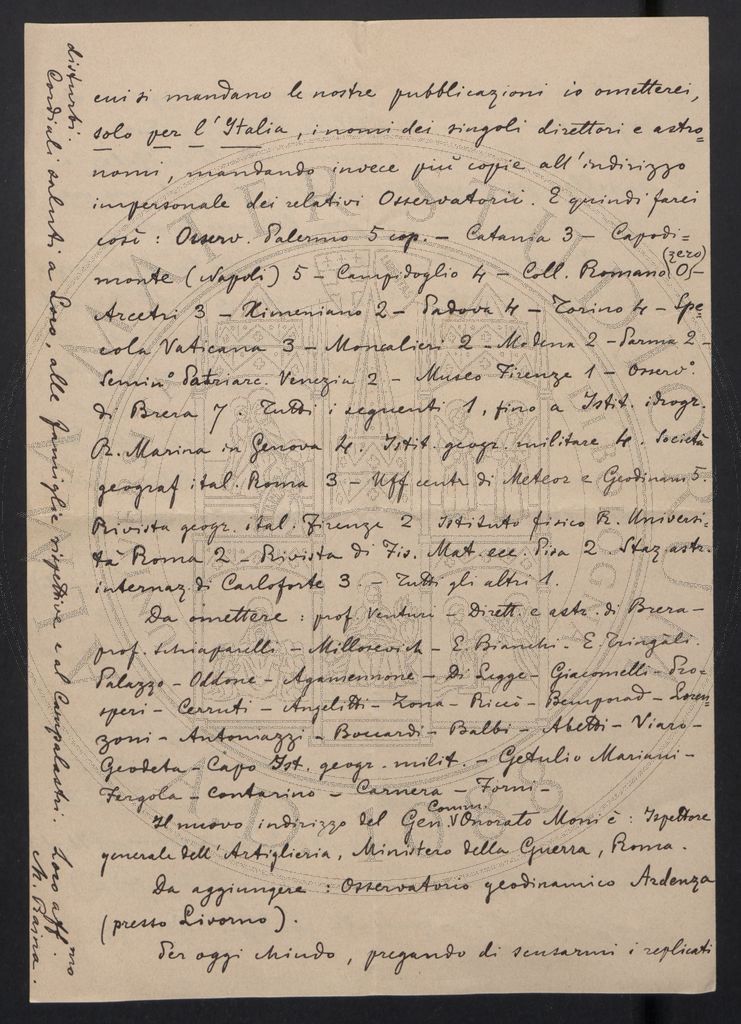 cui si mandano le nostre pubblicazioni io ometterei,
solo per l'Italia, i nomi dei singoli direttori e astro-
nomi, mandando invece più copie all'indirizzo
impersonale dei relativi Osservatorii. E quindi farei
così: Osserv. Palermo 5 cop. – Catania 3 – Capodi=
monte (Napoli) 5 – Campidoglio 4 – Coll. Romano 0 (zero) –
Arcetri 3 – Ximeniano 2 – Padova 4 – Torino 4 – Spe=
cola Vaticana 3 – Moncalieri 2 – Modena 2 – Parma 2 –
Semin° Patriarc. Venezia 2 – Museo Firenze 1 – Osserv°.
di Brera 7. Tutti i seguenti 1, fino a Istit. idrogr.
R. Marina in Genova 4. Istit. geogr. militare 4. Società
geograf. ital. Roma 3 – Uff. centr. di Meteor e Geodinam 5.
Rivista geogr. ital. Firenze 2 Istituto fisico R. Universi-
tà Roma 2 – Rivista di Fis. Mat. ecc. Pisa 2. Staz. astr.
internaz. di Carloforte 3. – Tutti gli altri 1.
Da omettere: prof. Venturi – Dirett. e astr. di Brera –
prof. Schiaparelli – Millosevich – E. Bianchi – E. Tringali.
Palazzo – Oddone – Agamennone – Di Legge – Giacomelli – Pro-
speri – Cerruti – Angelitti – Zona – Riccò – Bemporad – Loren-
zoni – Antoniazzi – Boccardi – Balbi – Abetti – Viaro –
Geodeta – Capo Ist. geogr. milit. – Getulio Mariani –
Fergola – Contarino – Carnera – Forni –
Il nuovo indirizzo del Gen. Comm. Onorato Moni è: Ispettore
generale dell'Artiglieria, Ministero della Guerra, Roma.
Da aggiungere: Osservatorio geodinamico Ardenza
(presso Livorno).
Per oggi chiudo, pregando di scusarmi i replicati
disturbi.
Cordiali saluti a Loro, alle famiglie rispettive e al Campalastri. Loro affmo
M. Rajna.